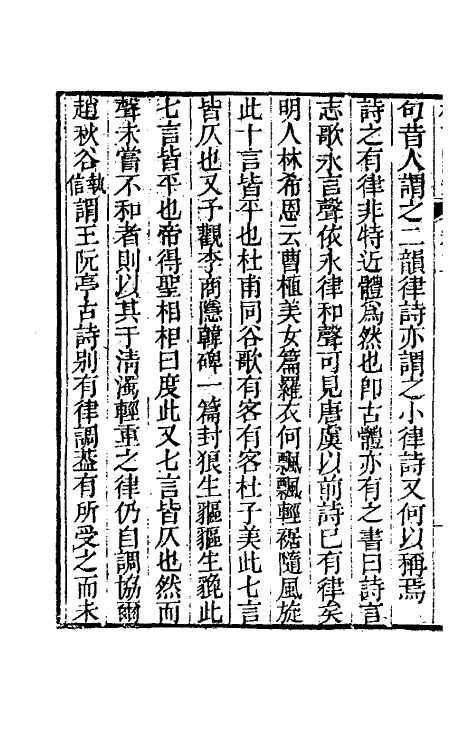 句昔人謂之二韻律詩亦謂之小律詩又何以稱焉
詩之有律非特近體爲然也卽古體亦有之書曰詩言
志歌永言聲依永律和聲可見唐虞以前詩已有律矣
明人林希恩云曹植美女篇羅衣何飄飄輕裾隨風旋
此十言皆平也杜甫同谷歌有客有客杜子美此七言
皆仄也又予觀李商隱韓碑一篇封狼生貙貙生貔此
七言皆平也帝得聖相相曰度此又七言皆仄也然而
聲未嘗不和者則以其于清濁輕重之律仍自調協爾
趙秋谷執信謂王阮亭古詩别有律調葢有所受之而未